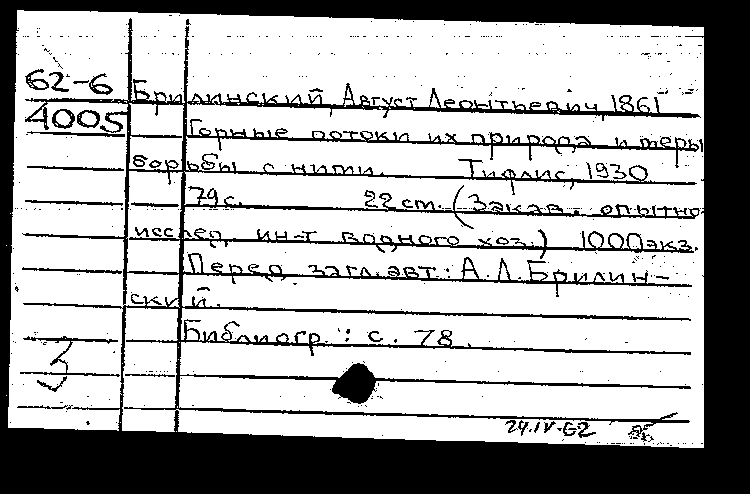 62-6
Брилинский, Август Леонтьевич, 1861
4005
Горные потоки их природа и меры
борьбы с ними. Тифлис, 1930
79 с. 22 cm. (Закав. опытно-
исслед. ин-т водного хоз.) 1000 экз.
Перед загл. авт.: А.Л. Брилин-
ский.
Библиогр.: с. 78.
З
24.IV-62